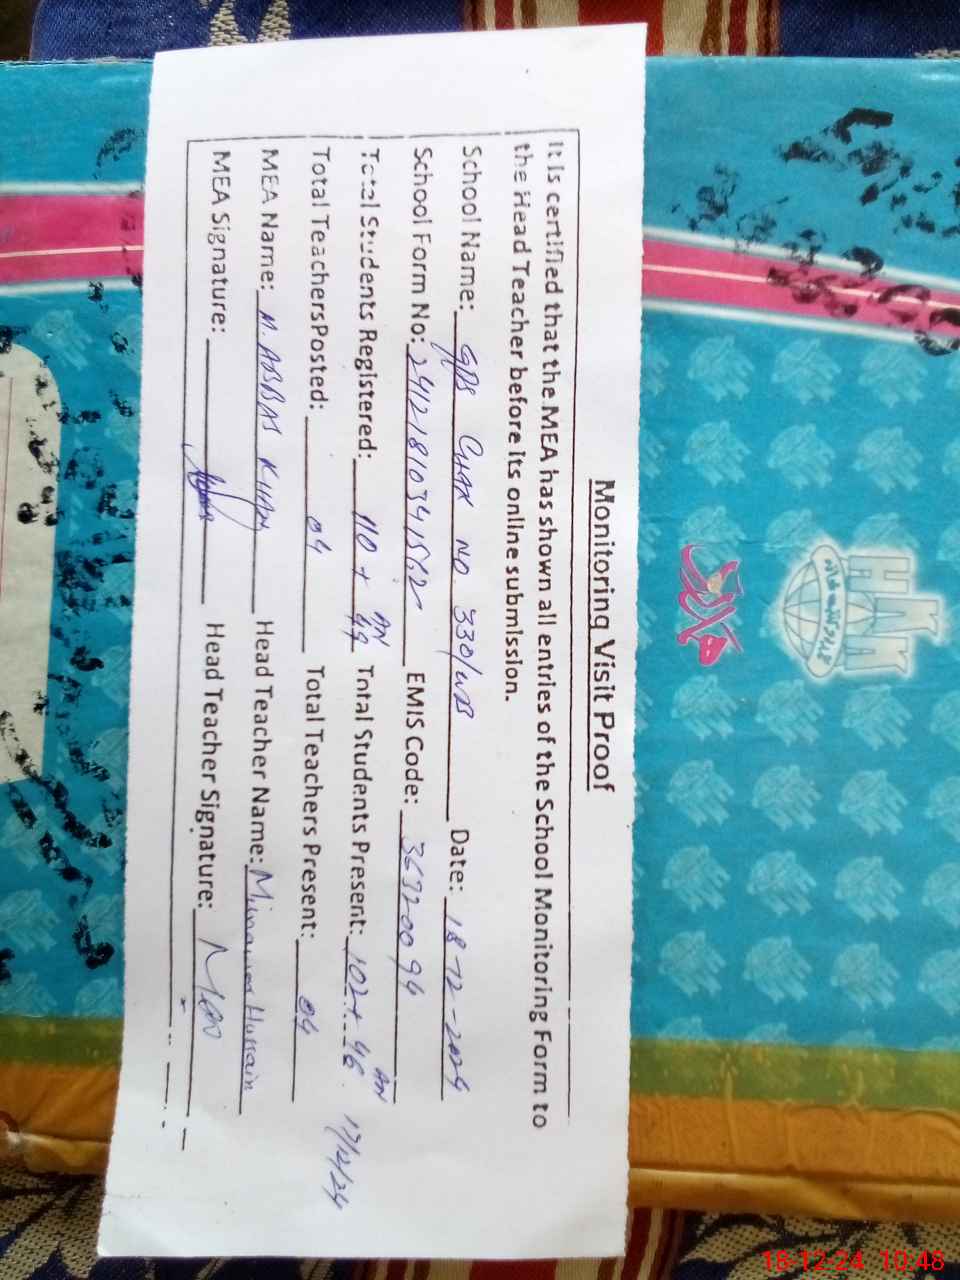 Monitoring Visit Proof
It is certified that the MEA has shown all entries of the School Monitoring Form to
the Head Teacher before its online submission.
School Name: GPS CHAK NO 330/WB Date: 18-12-2024
School Form No: EMIS Code: 36320094
AN AN
Total Students Registered: 110 + 49 Total Students Present: 102 + 46 17/12/24
Total TeachersPosted: 04 Total Teachers Present: 04
MEA Name: M. ABBAS KHAN Head Teacher Name: Munawar Hussain
MEA Signature: Head Teacher Signature:
18-12-24 10:48